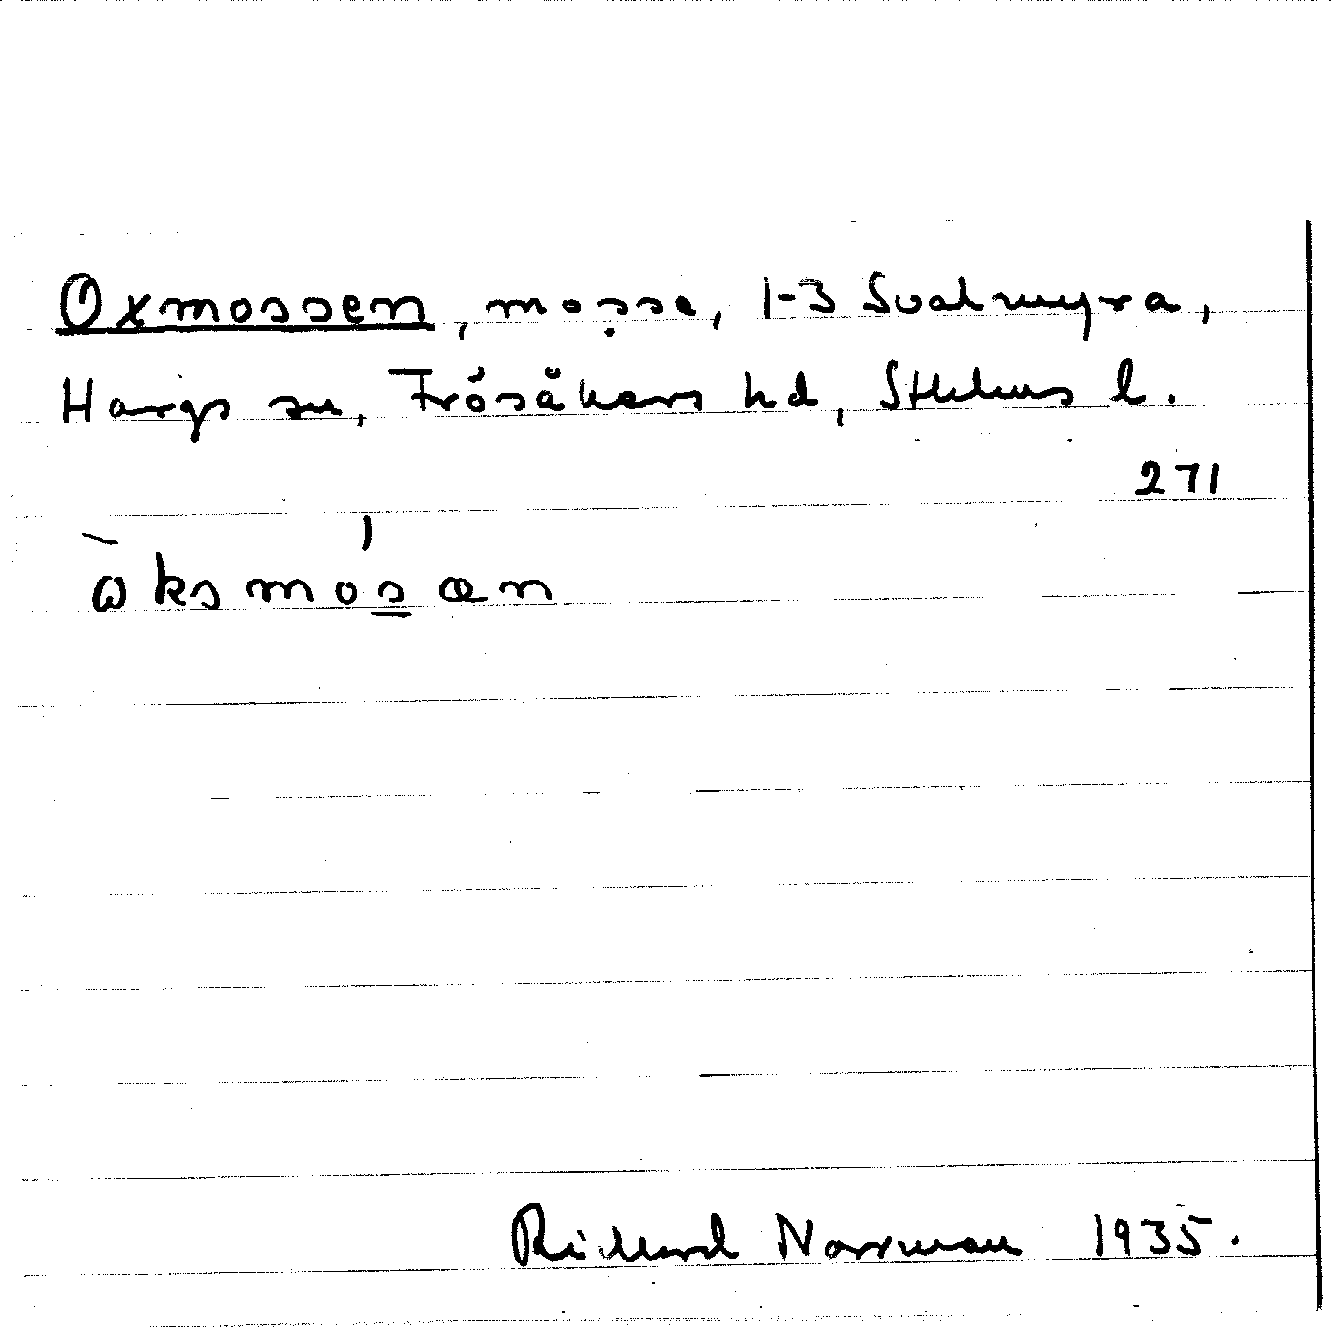 Oxmossen, mosse, 1-3 Svalmyra,
Hargs sn, Frösåkers hd, Sthlms l.
271
ⱺ̀ksmósæn
Rickard Norrman 1935.